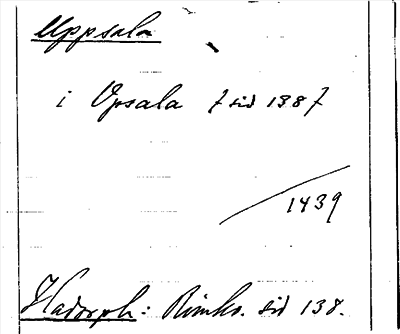 Uppsala
i Vpsala 7 sid 1387
1439
Hadorph: Rimkr. sid 138.